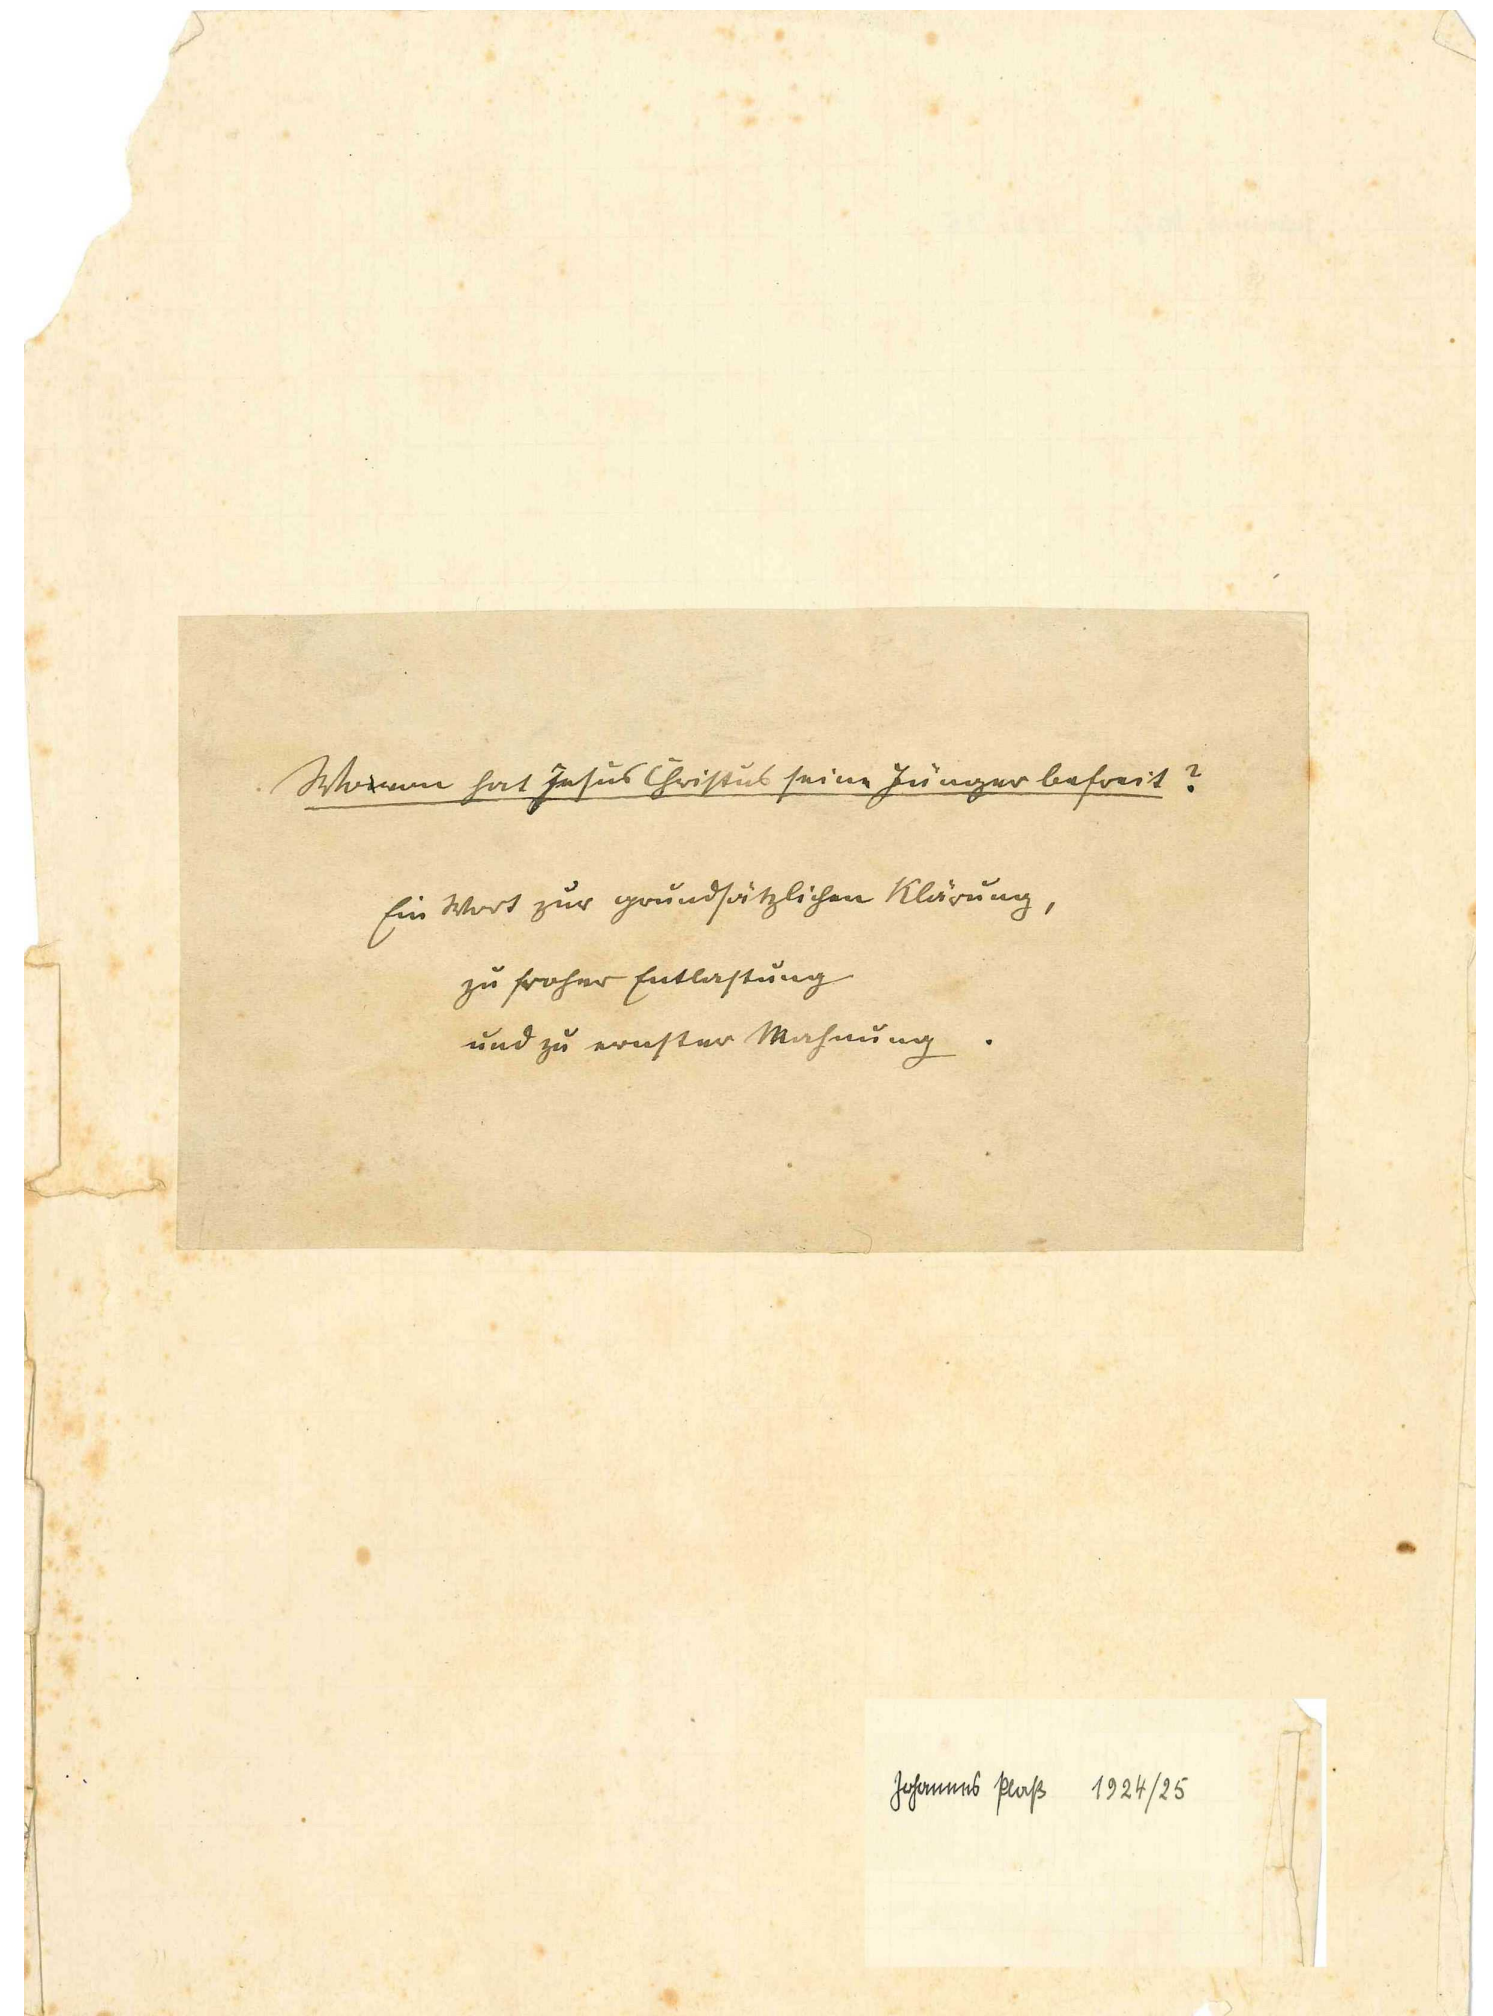 Wovon hat Jesus Christus seine Jünger befreit?
Ein Wort zur grundsätzlichen Klärung,
zu froher Entlastung
und zu ernster Mahnung.
Johannes Plaß 1924/25